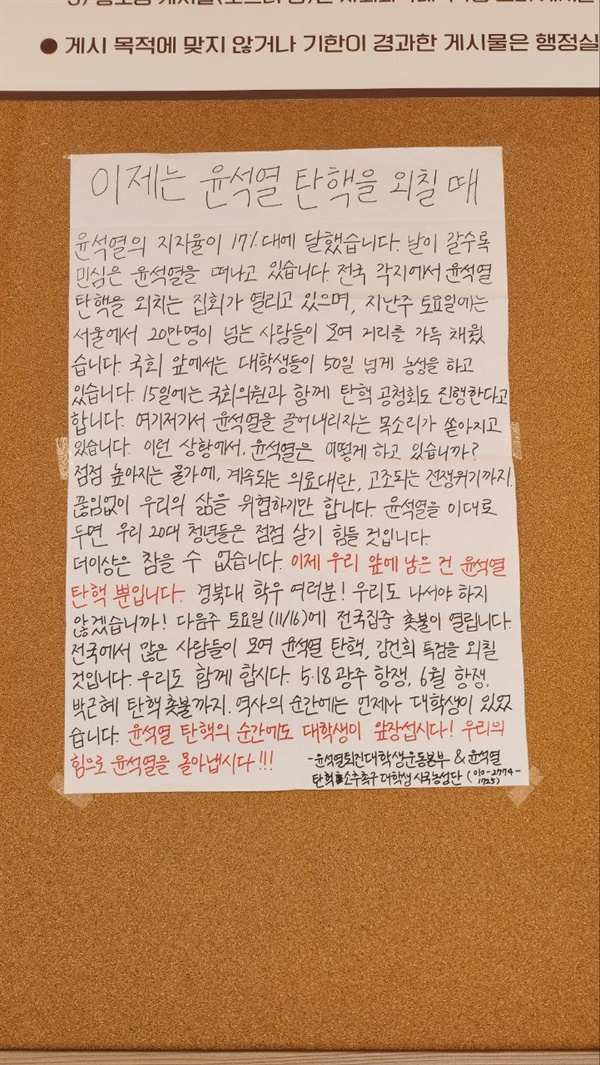 ● 게시 목적에 맞지 않거나 기한이 경과한 게시물은 행정실
이제는 윤석열 탄핵을 외칠 때
윤석열의 지지율이 17%대에 달했습니다. 날이 갈수록
민심은 윤석열을 떠나고 있습니다. 전국 각지에서 윤석열
탄핵을 외치는 집회가 열리고 있으며, 지난주 토요일에는
서울에서 20만명이 넘는 사람들이 모여 거리를 가득 채웠
습니다. 국회 앞에서는 대학생들이 50일 넘게 농성을 하고
있습니다. 15일에는 국회의원과 함께 탄핵 공청회도 진행한다고
합니다. 여기저기서 윤석열을 끌어내리자는 목소리가 쏟아지고
있습니다. 이런 상황에서, 윤석열은 어떻게 하고 있습니까?
점점 높아지는 물가에, 계속되는 의료대란, 고조되는 전쟁위기까지.
끊임없이 우리의 삶을 위협하기만 합니다. 윤석열을 이대로
두면 우리 20대 청년들은 점점 살기 힘들 것입니다.
더이상은 참을 수 없습니다. 이제 우리 앞에 남은 건 윤석열
탄핵 뿐입니다. 경북대 학우 여러분! 우리도 나서야 하지
않겠습니까! 다음주 토요일 (11/16)에 전국집중 촛불이 열립니다.
전국에서 많은 사람들이 모여 윤석열 탄핵, 김건희 특검을 외칠
것입니다. 우리도 함께 합시다. 5.18 광주 항쟁, 6월 항쟁,
박근혜 탄핵 촛불까지. 역사의 순간에는 언제나 대학생이 있었
습니다. 윤석열 탄핵의 순간에도 대학생이 앞장섭시다! 우리의
힘으로 윤석열을 몰아냅시다!!!
-윤석열퇴진대학생운동본부 & 윤석열
탄핵소추촉구 대학생 시국농성단 (010-2774-
1725)